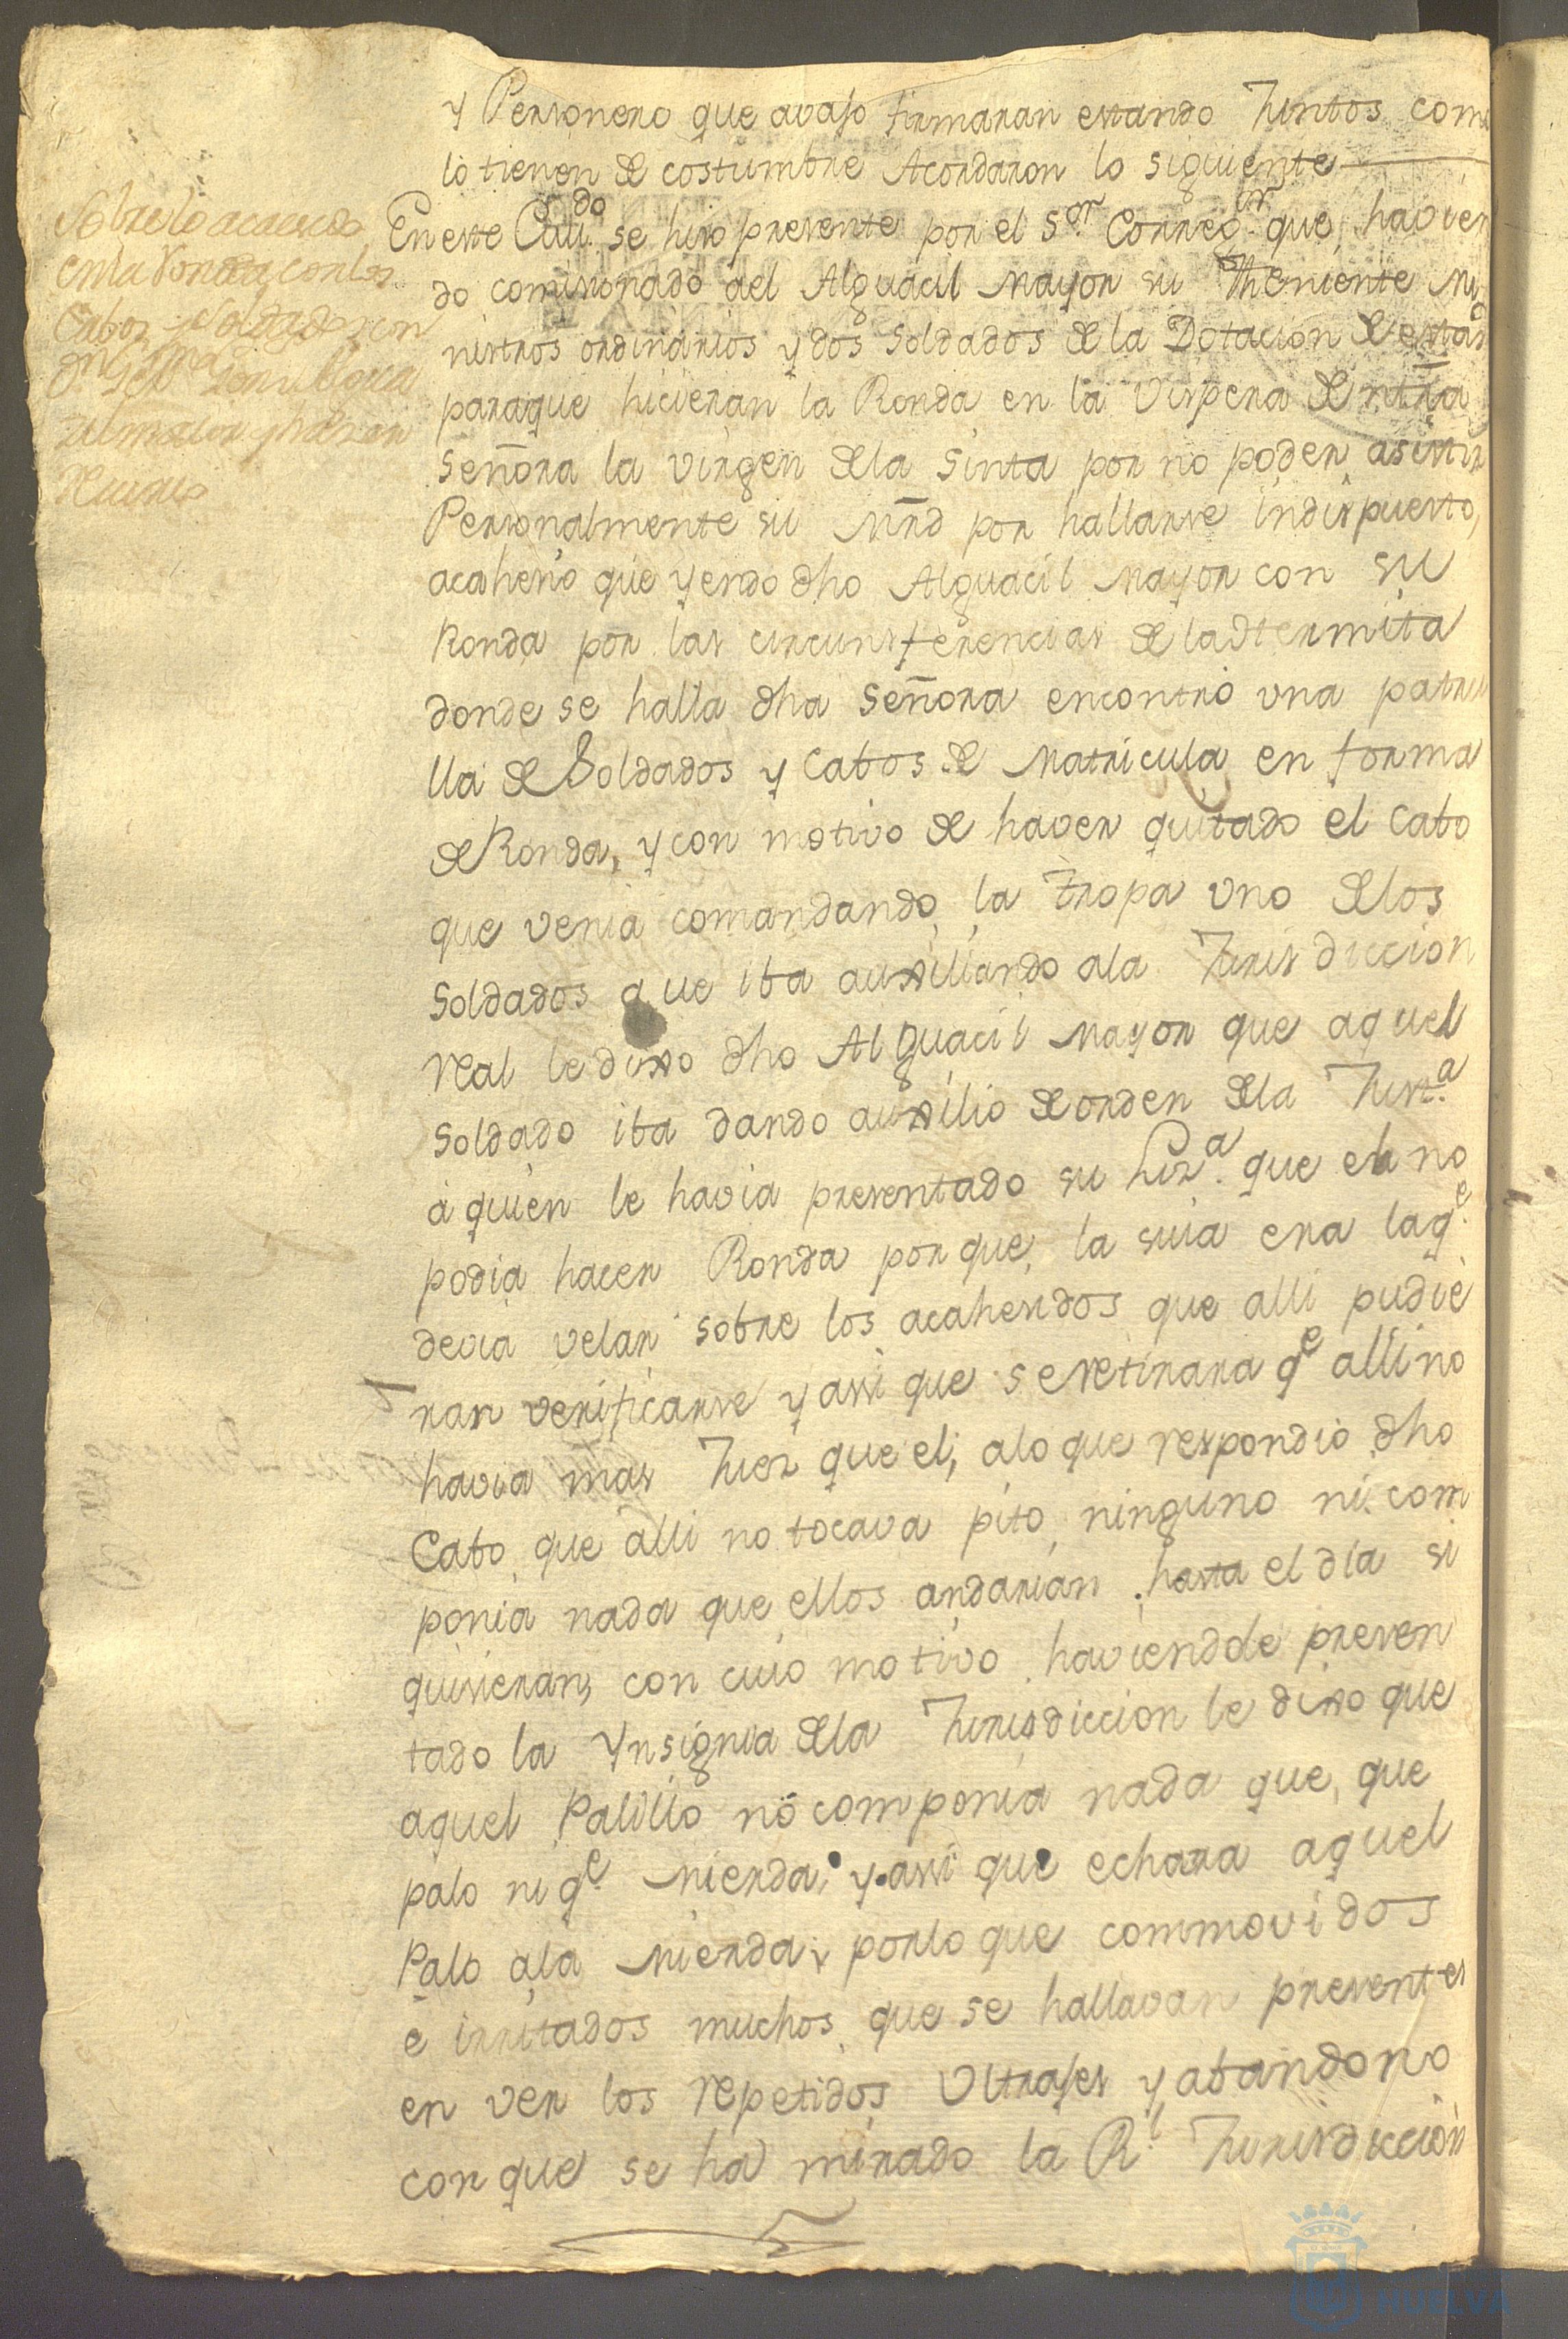 y Personero que avajo firmaran estando Juntos como
lo tienen de costumbre Acordaron lo siguiente
En este Cavdo se hizo presente por el Sor. Correg.or que havien
do comisionado ael Alguacil Mayor su Theniente Mi
nistros ordinarios y dos Soldados de la Dotacion de esta
paraque hicieran la Ronda en la Vispera de ntra
Señora la virgen dela Sinta por no poder asistir
Personalmente su Mrd por hallarse indispuesto,
acahesio que yendo dho Alguacil Mayor con su
Ronda por las circunsferencias de la Hermita
donde se halla dha Señora encontró una patru
lla de Soldados y Cabos de Matricula en forma
de Ronda, y con motivo de haver quitado el Cabo
que venia comandando la tropa uno delos
Soldados que iba auxiliando ala Jurisdiccion
real le dixo dho Alguacil Mayor que aquel
Soldado iba dando auxilio de orden dela Just.a
á quien le havia presentado su Liz.a que el no
podia hacer Ronda porque la suia era la q.e
devia velar sobre los acahesidos que alli pudie
ran verificarse y assi que se retirara q.e alli no
havia mas Juez que el; alo que respondió dho
Cabo que alli no tocava pito ninguno ni com
ponia nada que ellos andarian hasta el dia si
quisieran, con cuio motivo haviendole presen
tado la Ynsignia dela Jurisdiccion le dixo que
aquel Palillo no componia nada que, que
palo ni q.e mierda, y assi que echara aquel
Palo ala mierda, porlo que commovidos
e irritados muchos que se hallavan presentes
en ver los repetidos Ultrajes y abandono
con que se ha mirado la R.l Jurisdiccion
Sobre lo acaecido
en la Ronda con los
Cabos y Soldados
HUELVA